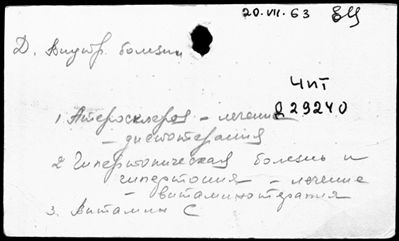 20.VII.63
Д. Внутр. болезни
ЧПТ
д 29240
1 Атеросклероз – лечение
– диетотерапия
2 Гипертоническая болезнь и
гипертония – лечение
– витаминотерапия
3. Витамин С